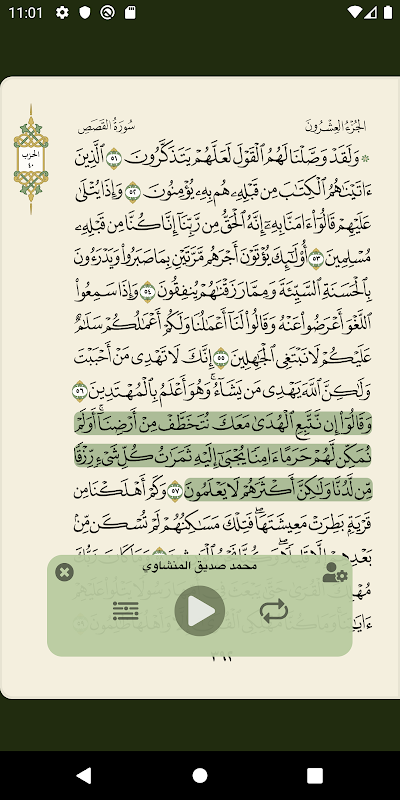 11:01
الجُزْءُ العِشْرُونَ
سُورَةُ القَصَصِ
الحزب
٤٠
۞ وَلَقَدْ وَصَّلْنَا لَهُمُ ٱلْقَوْلَ لَعَلَّهُمْ يَتَذَكَّرُونَ ٥١ ٱلَّذِينَ
ءَاتَيْنَٰهُمُ ٱلْكِتَٰبَ مِن قَبْلِهِۦ هُم بِهِۦ يُؤْمِنُونَ ٥٢ وَإِذَا يُتْلَىٰ
عَلَيْهِمْ قَالُوٓا۟ ءَامَنَّا بِهِۦٓ إِنَّهُ ٱلْحَقُّ مِن رَّبِّنَآ إِنَّا كُنَّا مِن قَبْلِهِۦ
مُسْلِمِينَ ٥٣ أُو۟لَٰٓئِكَ يُؤْتَوْنَ أَجْرَهُم مَّرَّتَيْنِ بِمَا صَبَرُوا۟ وَيَدْرَءُونَ
بِٱلْحَسَنَةِ ٱلسَّيِّئَةَ وَمِمَّا رَزَقْنَٰهُمْ يُنفِقُونَ ٥٤ وَإِذَا سَمِعُوا۟
ٱللَّغْوَ أَعْرَضُوا۟ عَنْهُ وَقَالُوا۟ لَنَآ أَعْمَٰلُنَا وَلَكُمْ أَعْمَٰلُكُمْ سَلَٰمٌ
عَلَيْكُمْ لَا نَبْتَغِى ٱلْجَٰهِلِينَ ٥٥ إِنَّكَ لَا تَهْدِى مَنْ أَحْبَبْتَ
وَلَٰكِنَّ ٱللَّهَ يَهْدِى مَن يَشَآءُ ۚ وَهُوَ أَعْلَمُ بِٱلْمُهْتَدِينَ ٥٦
وَقَالُوٓا۟ إِن نَّتَّبِعِ ٱلْهُدَىٰ مَعَكَ نُتَخَطَّفْ مِنْ أَرْضِنَآ ۚ أَوَلَمْ
نُمَكِّن لَّهُمْ حَرَمًا ءَامِنًا يُجْبَىٰٓ إِلَيْهِ ثَمَرَٰتُ كُلِّ شَىْءٍ رِّزْقًا
مِّن لَّدُنَّا وَلَٰكِنَّ أَكْثَرَهُمْ لَا يَعْلَمُونَ ٥٧ وَكَمْ أَهْلَكْنَا مِن
قَرْيَةٍۭ بَطِرَتْ مَعِيشَتَهَا ۖ فَتِلْكَ مَسَٰكِنُهُمْ لَمْ تُسْكَن مِّنۢ
محمد صديق المنشاوي